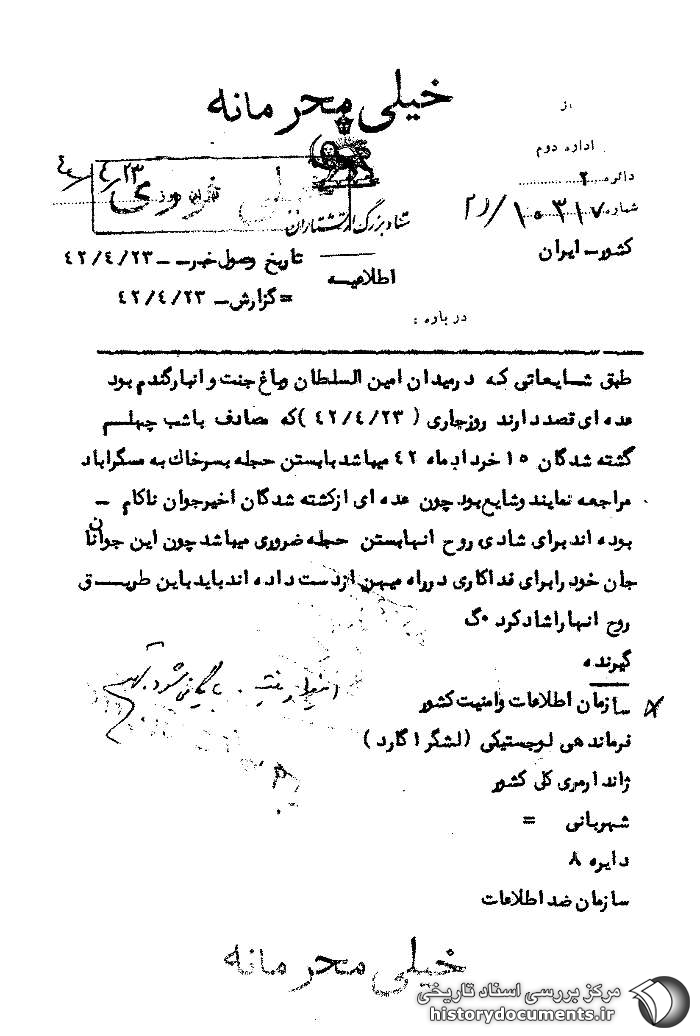 خیلی محرمانه
از
اداره دوم
دائره ۲
شماره ۱۰۳۱۷/ ۲۱
کشور ـ ایران
خیلی فوری
ستاد بزرگ ارتشتاران
اطلاعیه
تاریخ وصول خبر ـ ـ ۴۲/۴/۲۳
= گزارش ـ ۴۲/۴/۲۳
درباره :
طبق شایعاتی که درمیدان امین السلطان وباغ جنت و انبارگندم بود
عده ای قصددارند روزجاری ( ۴۲/۴/۲۳ )که مصادف باشب چهلم
گشته شدگان ۱۵ خرداد ماه ۴۲ میباشد بابستن حجله بسرخاک به مسگراباد
مراجعه نمایند وشایع بود چون عده ای ازکشته شدگان اخیرجوان ناکام ـ
بوده اند برای شادی روح انهابستن حجله ضروری میباشد چون این جوانان
جان خود رابرای فداکاری درراه میهن ازدست داده اند باید باین طریـــق
روح انهاراشاد کرد ۰گ
گیرنده
سازمان اطلاعات وامنیت کشور
فرماندهی لوجستیکی (لشگر ۱ گارد )
ژاندارمری کل کشور
شهربانی =
دایره ۸
سازمان ضد اطلاعات
بایگانی شود
خیلی محرمانه
مرکز بررسی اسناد تاریخی
historydocuments.ir